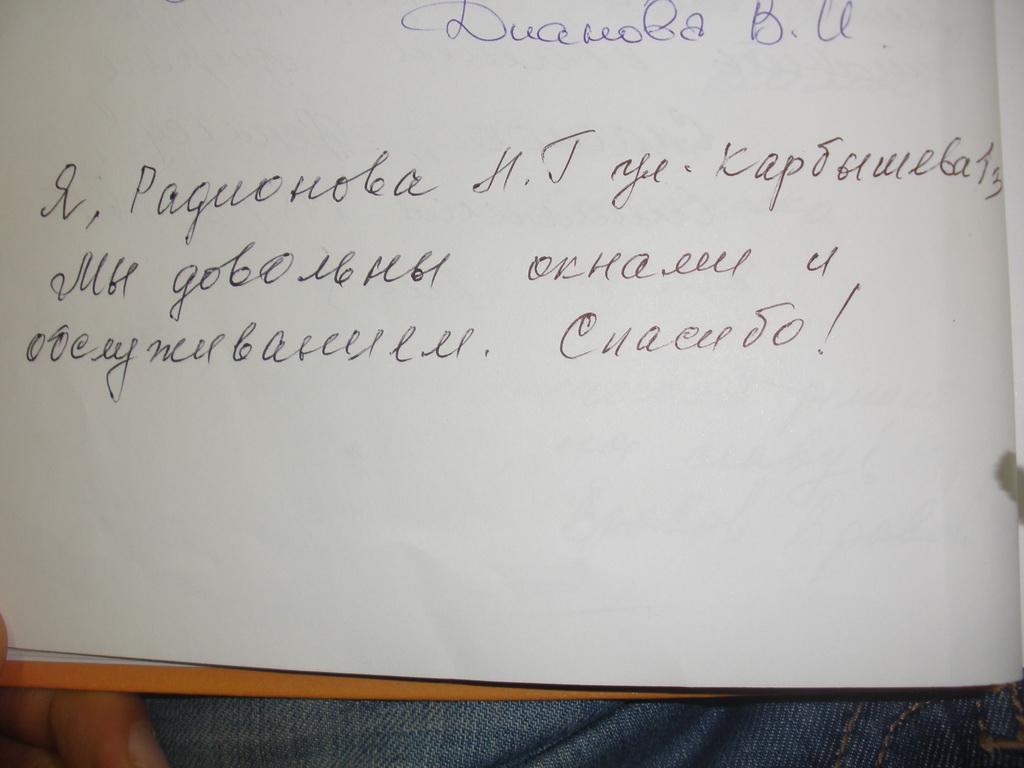 Дианова В. И
Я, Радионова Н. Г ул. Карбышева 13
Мы довольны окнами и
обслуживанием. Спасибо!